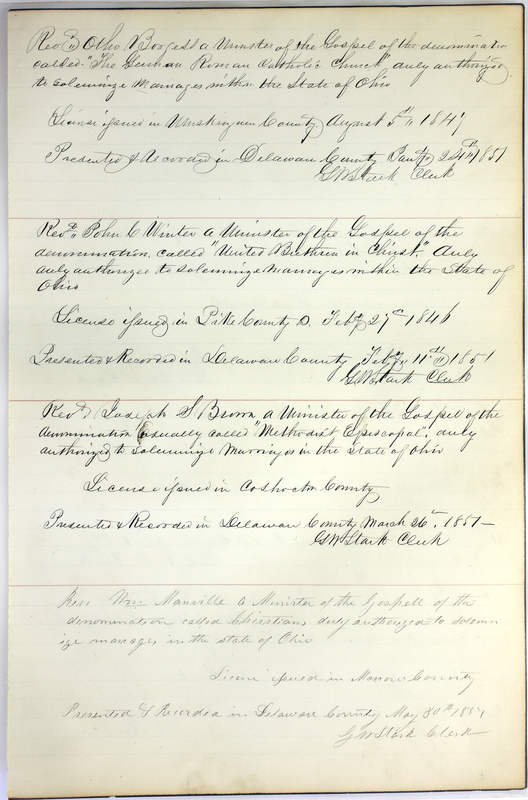 Revd Otho Borgess a Minister of the Gospel of the denomination
called "The German Roman Catholic Church" duly authorized
to solemnize Marriages within the State of Ohio
License issued in Muskingum County August 5th 1847
Presented & Recorded in Delaware County Jany 24th 1851
GW Stark Clerk
Revd John C Winter a Minister of the Gospel of the
denomination called "United Brethren in Christ". duly
duly authorized to solemnize marriages within the State of
Ohio
License issued in Pike County O. Feby 27th 1846
Presented & Recorded in Delaware County Feby 11th 1851
GW Stark Clerk
Revd Joseph S Brown a Minister of the Gospel of the
denomination usually called "Methodist Episcopal". duly
authorized to solemnize Marriages in the State of Ohio
License issued in Coshocton County
Presented & Recorded in Delaware County March 26th, 1851—
GW Stark Clerk
Rev Wm Manville a Minister of the Gospell of the
denomination called Christians duly authorized to solemn
ize marriages in the state of Ohio
Licens issued in Morrow County
Presented & Recorded in Delaware County May 30th 1851
G W Stark Clerk